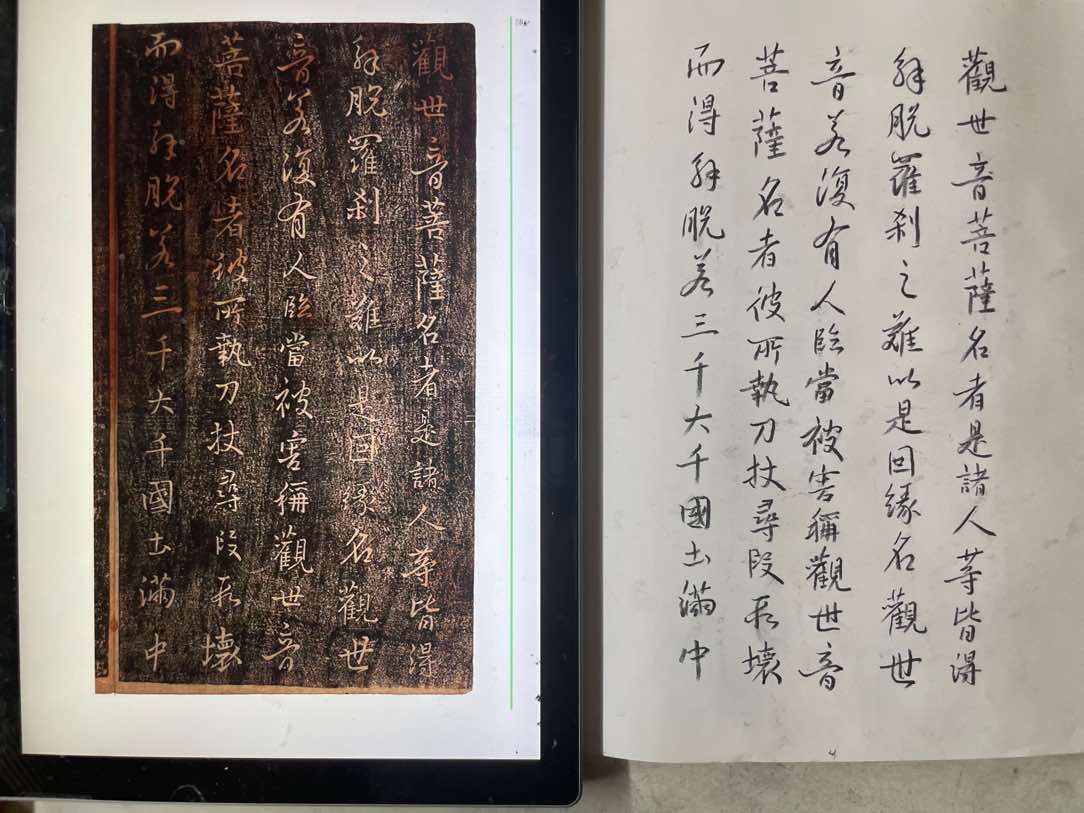 觀世音菩薩名者是諸人等皆得
解脫羅剎之難以是因緣名觀世
音若復有人臨當被害稱觀世音
菩薩名者彼所執刀杖尋段段壞
而得解脫若三千大千國土滿中
觀世音菩薩名者是諸人等皆得
解脫羅剎之難以是因緣名觀世
音若復有人臨當被害稱觀世音
菩薩名者彼所執刀杖尋段段壞
而得解脫若三千大千國土滿中